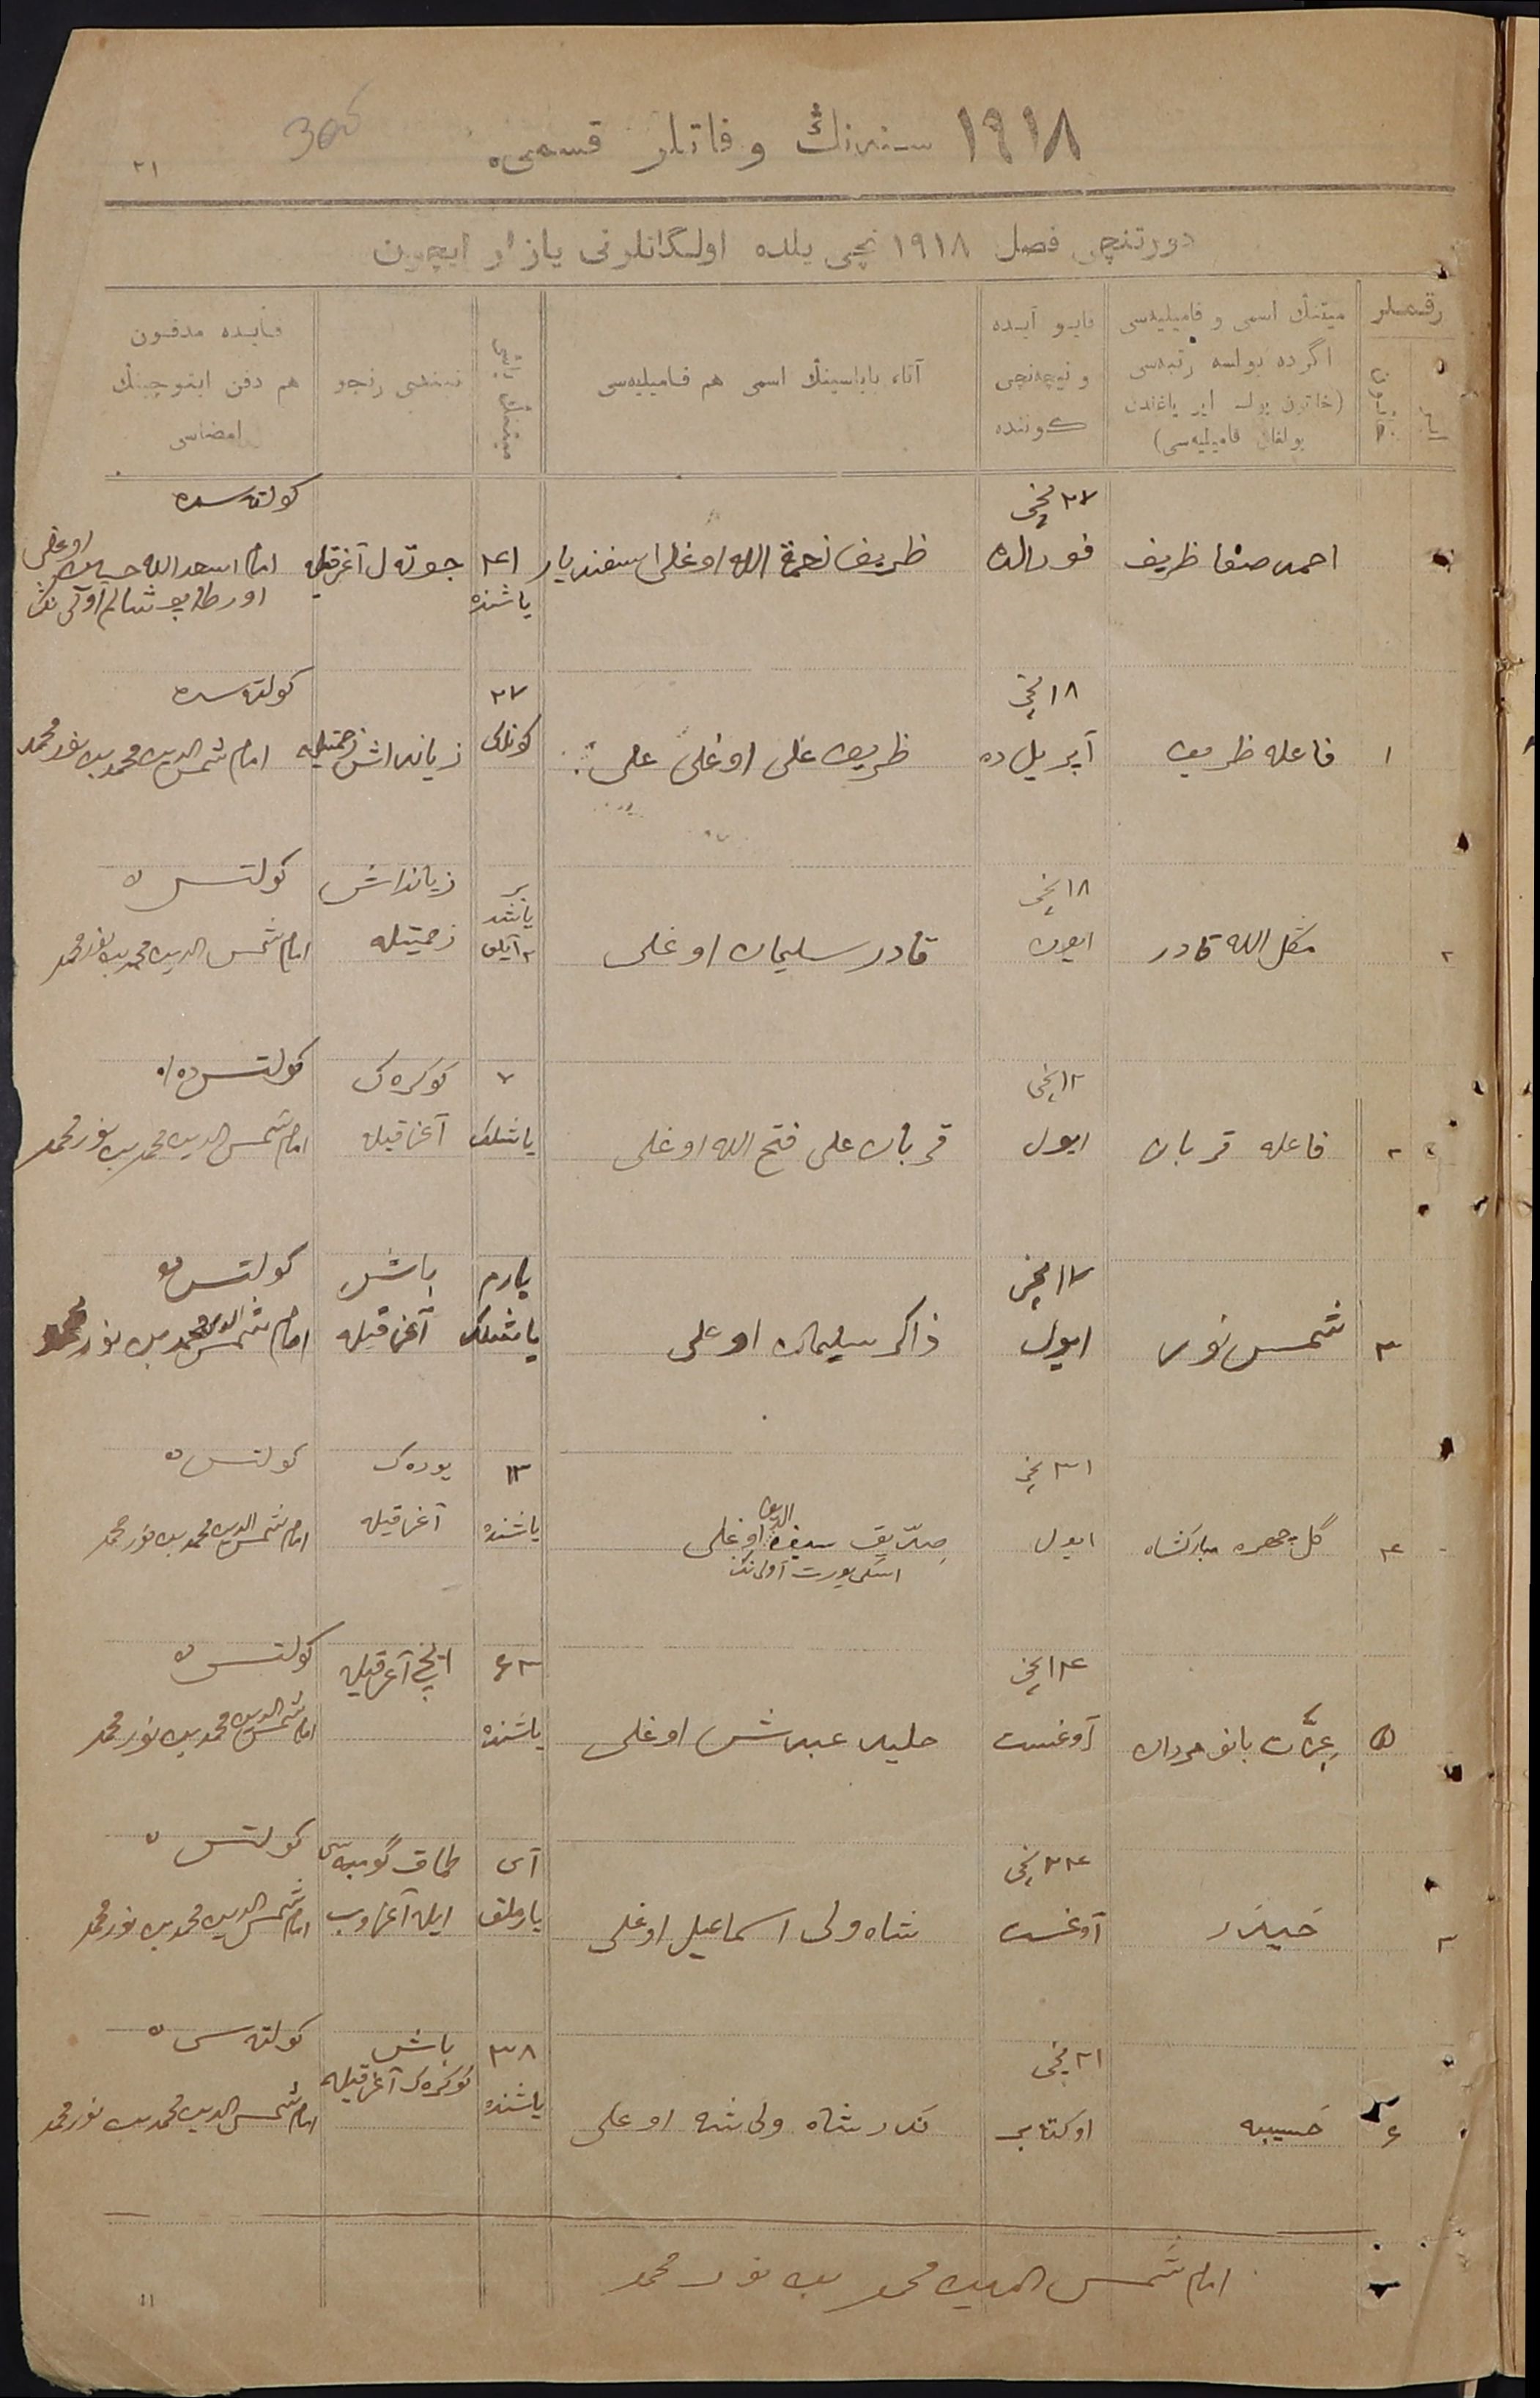 ١٩١٨ سنه‌نڭ وفاتلر قسمی
٢١
دورتنچی فصل ١٩١٨ نچی یلده اولگانلرنی یازار ایچون
رقملر
میتنڭ اسمی و فامیلیه‌سی
اگرده بولسه رتبه‌سی
(خاتون بولسه ایر یاغندن
بولغان فامیلیه‌سی)
قایو آیده
و نیچه‌نچی
كوننده
آتا، باباسینڭ اسمی هم فامیلیه‌سی
نیندی رنجو
قایده مدفون
هم دفن ایتوچینڭ
امضاسی
احمد صفا ظریف
٢٧ نچی
فورالده
ظریف نعمة الله اوغلی اسفندیار
٤١
یاشنده
آغرقیله
كولته‌سده
امام اسعد الله
١
فاعله ظریف
١٨ نچی
آپریل ده
ظریف علی اوغلی علی
٢٧
كونلك
زیانداش زحمتیله
كولته‌سده
امام شمس الدین محمد بن نور محمد
٢
قادر
١٨ نچی
ایون
قادر سلیمان اوغلی
بر
یاشد
٢ آیلق
زیانداش
زحمتیله
كولتسه ده
امام شمس الدین محمد بن نور محمد
٢
فاعله قربان
١٢ نچی
ایول
قربان علی فتح الله اوغلی
٧
یاشلك
كوكره‌ك
آغرقیله
كولتسده
امام شمس الدین محمد بن نور محمد
٣
شمس نور
١٧ نچی
ایول
ذاكر سلیمان اوغلی
یارم
یاشلك
باش
آغرقیله
كولتسده
امام شمس الدین محمد بن نور محمد
٤
گل چهره مباركشاه
٣١ نچی
ایول
صدّیق سیف الدین اوغلی
اسكی یورت آولی نڭ
١٣
یاشنده
یوره‌ك
آغرقیله
كولتسده
امام شمس الدین محمد بن نور محمد
٥
عزّت بانو مردان
١٤ نچی
آوغست
اوغلی
٦٣
یاشنده
ایچ آغرقیله
كولتسده
امام شمس الدین محمد بن نور محمد
٣
حیدر
٢٤ نچی
آوغست
شاه ولی اسماعیل اوغلی
آی
یارملق
طماق
ایله آغروب
كولتسده
امام شمس الدین محمد بن نور محمد
٦
حسیبه
٢١ نچی
اوكتابر
ولی شه اوغلی
٣٨
یاشنده
باش
كوكره‌ك آغرقیله
كولته‌سده
امام شمس الدین محمد بن نور محمد
امام شمس الدین محمد بن نور محمد